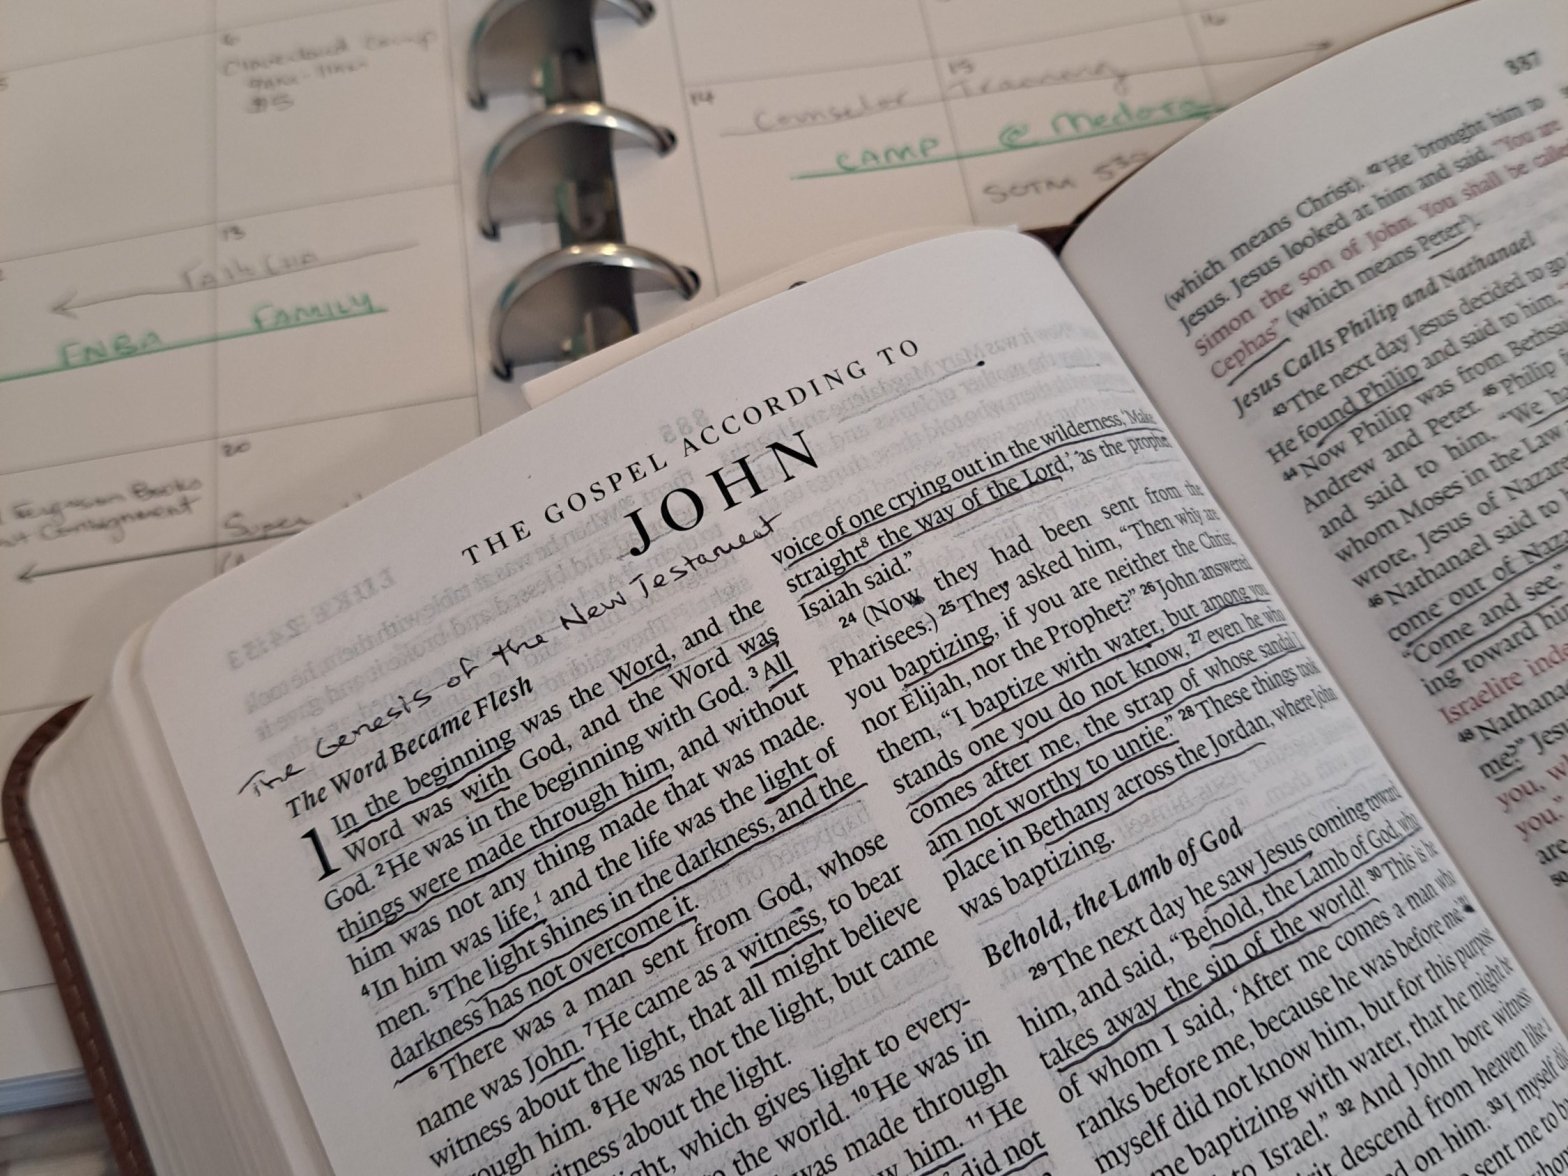 Counselor
14
15
CAMP @ Medora
SOTM
19
FNBA FAMILY
20
887
THE GOSPEL ACCORDING TO
JOHN
The Genesis of the New Testament
The Word Became Flesh
1 In the beginning was the Word, and the
Word was with God, and the Word was
God. 2 He was in the beginning with God. 3 All
things were made through him, and without
him was not any thing made that was made.
4 In him was life, and the life was the light of
men. 5 The light shines in the darkness, and the
darkness has not overcome it.
6 There was a man sent from God, whose
name was John. 7 He came as a witness, to bear
witness about the light, that all might believe
through him. 8 He was not the light, but came
witness about the light.
light, which gives light to every-
the world. 10 He was in
was made through
him. 11 He
did not
voice of one crying out in the wilderness, ‘Make
straight the way of the Lord,’ as the prophet
Isaiah said.”
24 (Now they had been sent from the
Pharisees.) 25 They asked him, “Then why are
you baptizing, if you are neither the Christ,
nor Elijah, nor the Prophet?” 26 John answered
them, “I baptize with water, but among you
stands one you do not know, 27 even he who
comes after me, the strap of whose sandal I
am not worthy to untie.” 28 These things took
place in Bethany across the Jordan, where John
was baptizing.
Behold, the Lamb of God
29 The next day he saw Jesus coming toward
him, and said, “Behold, the Lamb of God, who
takes away the sin of the world! 30 This is he
of whom I said, ‘After me comes a man who
ranks before me, because he was before me.’
myself did not know him, but for this purpose
me baptizing with water, that he might be
to Israel.” 32 And John bore witness
descend from heaven like
on him. 33 I myself
sent me to
(which means Christ). 42 He brought him to
Jesus. Jesus looked at him and said, “You are
Simon the son of John. You shall be called
Cephas” (which means Peter).
Jesus Calls Philip and Nathanael
43 The next day Jesus decided to go
He found Philip and said to him,
44 Now Philip was from Bethsaida
Andrew and Peter. 45 Philip
and said to him, “We
whom Moses in the Law
wrote, Jesus of Nazareth
46 Nathanael said to
come out of Nazareth
Come and see.”
ing toward him
Israelite indeed
48 Nathanael
me?” Jesus
you,
you.
are